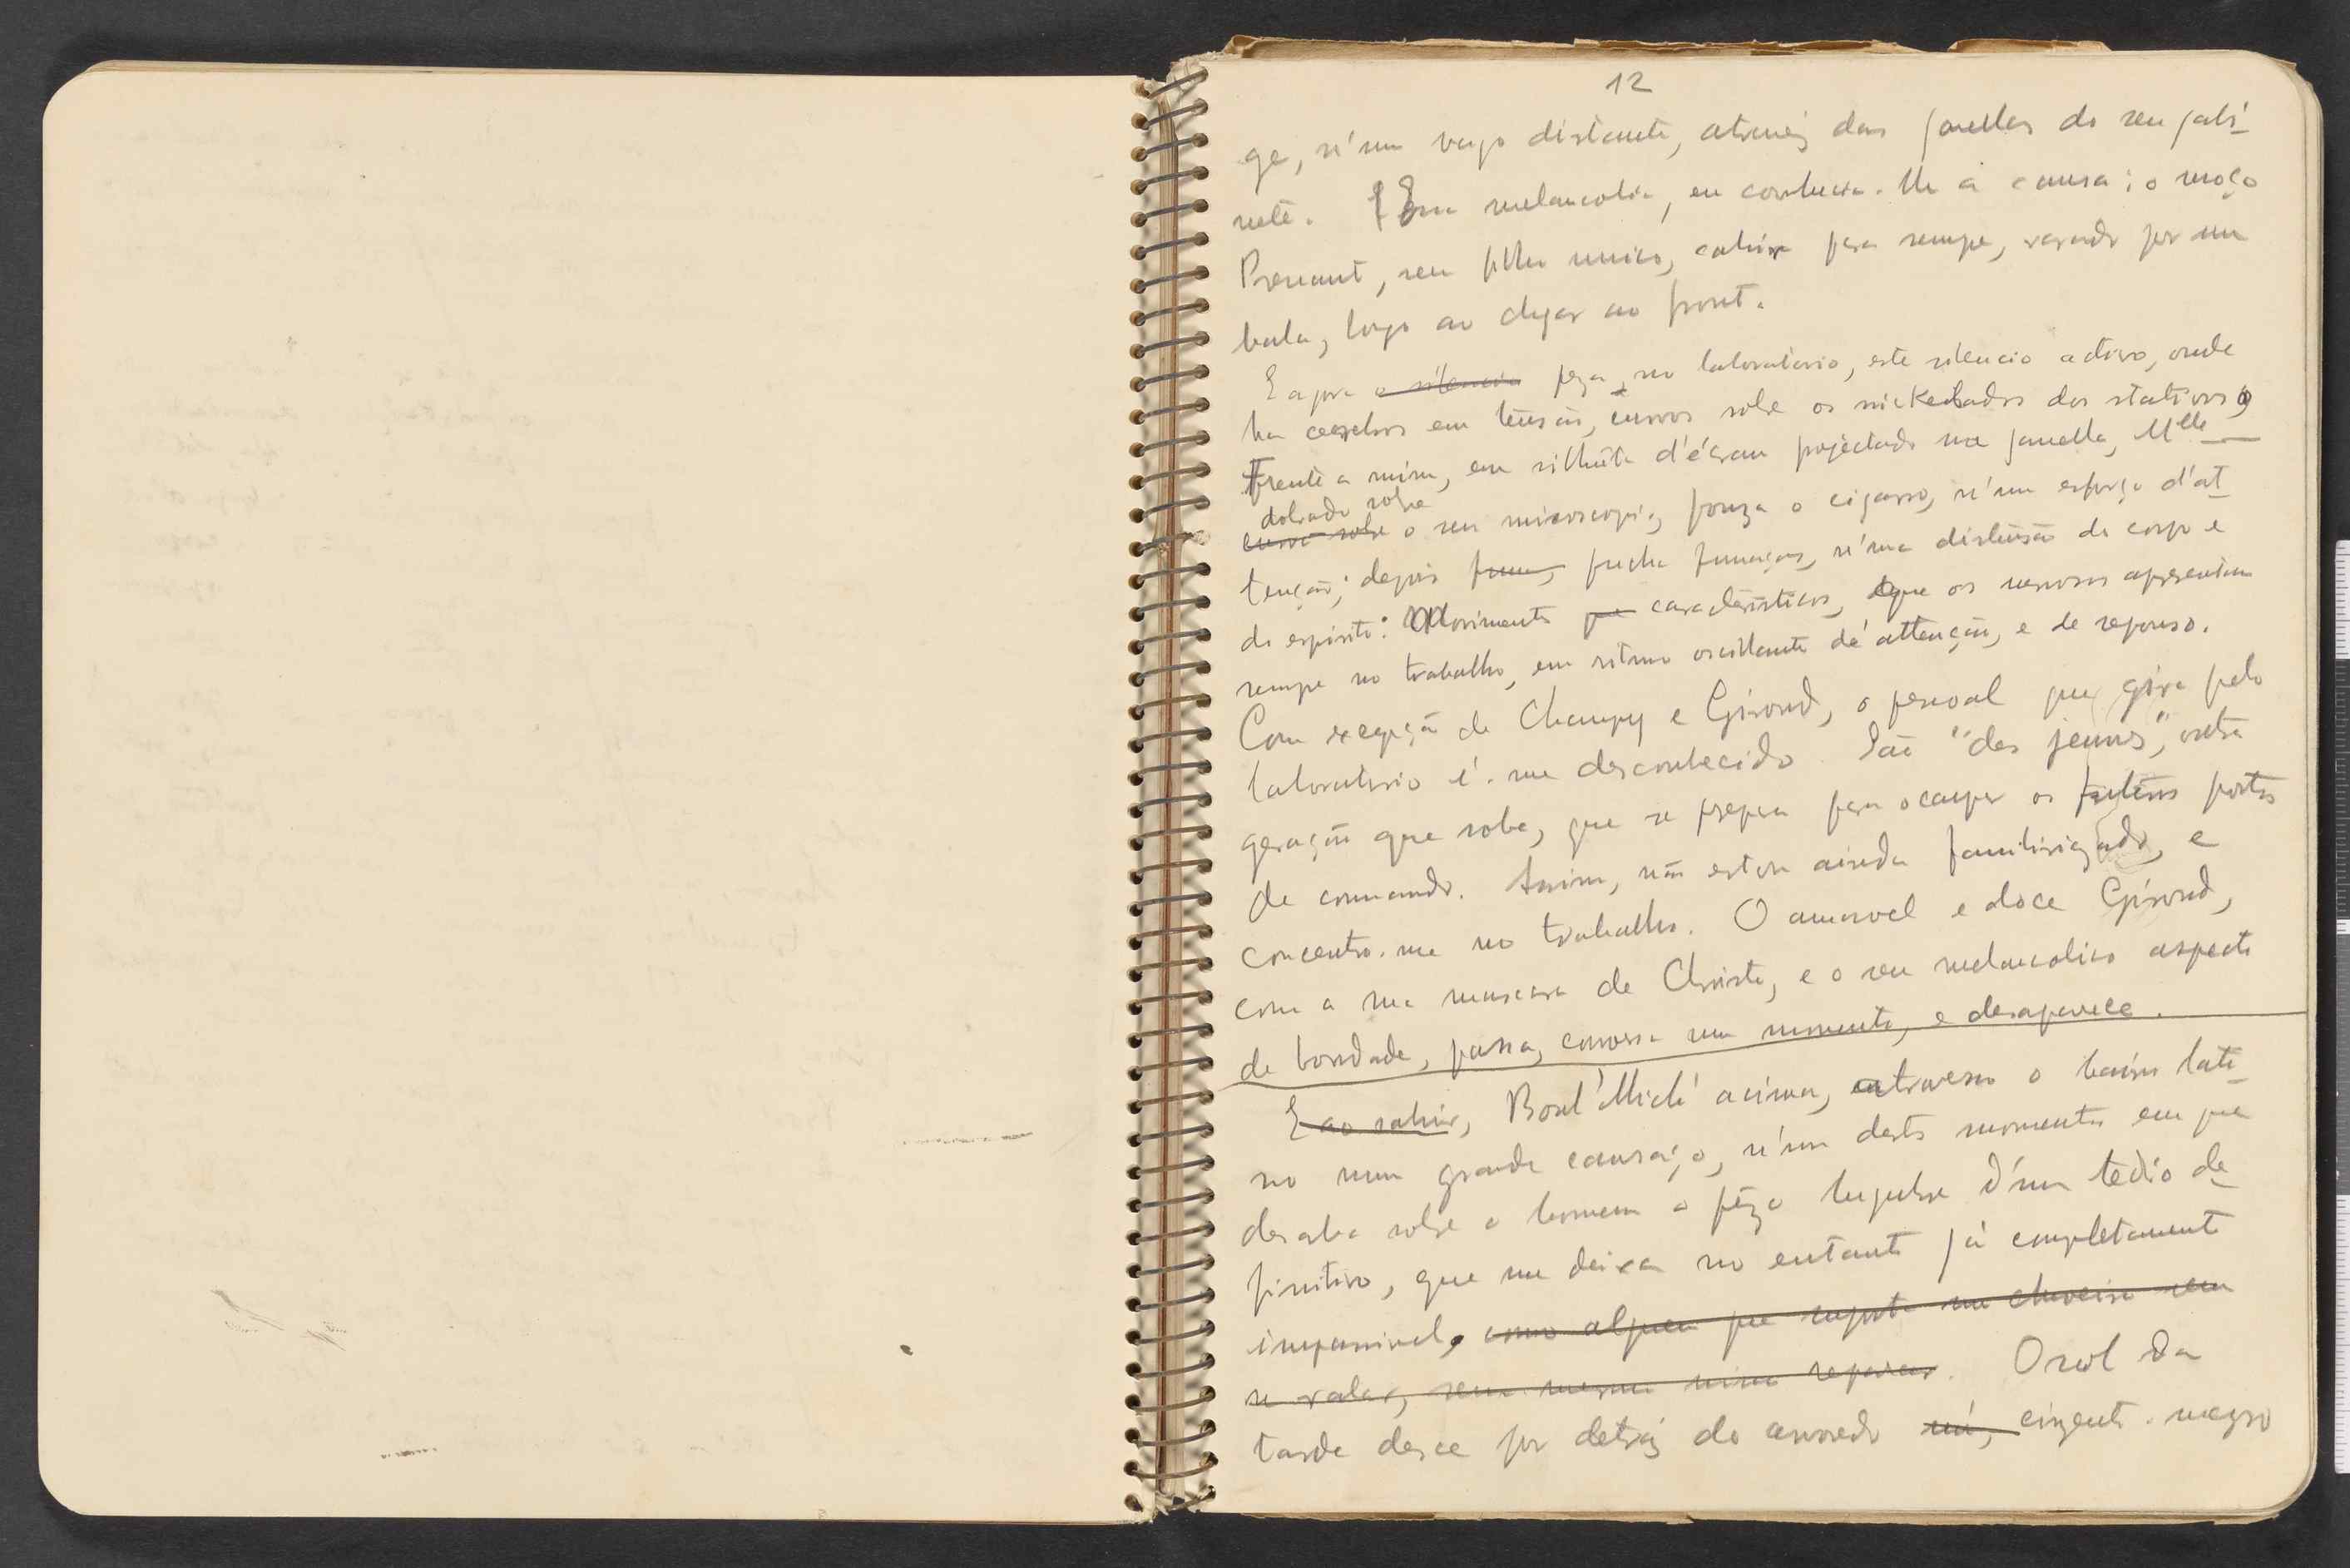 12
ge, n'um vago distante, atravez das janellas do seu gabi-
nete. Essa melancolia, eu conhecia-lhe a causa: o moço
Prenant, seu filho unico, cahira para sempre, varado por um
bala, logo ao chegar ao front.
E agora o silencio peza, no laboratorio, este silencio activo, onde
ha cerebros em tensão, curvos sobre os nickelados dos stativos,
Frente a mim, em silhueta d'écran projectado na janella, Mlle
dobrada sobre
curva sobre o seu microscopio, pouza o cigarro, n'um esforço d'at-
tenção; depois fuma, puxa fumaças, n'uma distensão de corpo e
de espirito: Movimentos que caracteristicos, que os nervosos apresentam
sempre no trabalho, em ritmo oscillante de attenção, e de repouso.
Com excepção de Champy e Giroud, o pessoal que gira pelo
laboratorio é-me desconhecido. São "des jeunes", outra
geração que sobe, que se prepara para occupar os futuros postos
de commando. Assim, não estou ainda familiarizado, e
concentro-me no trabalho. O amoravel e doce Giroud,
com a sua mascara de Christo, e o seu melancolico aspecto
de bondade, passa, conversa um momento, e desaparece.
E ao sahir, Boul'Mich' acima, atravesso o bairro lati-
no num grande cansaço, n'um destes momentos em que
desaba sobre o homem o pêzo lugubre d'um tedio de-
finitivo, que me deixa no entanto já completamente
impassivel, como alguem que suporta um chuveiro sem
se ralar, sem mesmo nisso reparar. O sol da
tarde desce por detraz do arvoredo nú, cinzento-negro